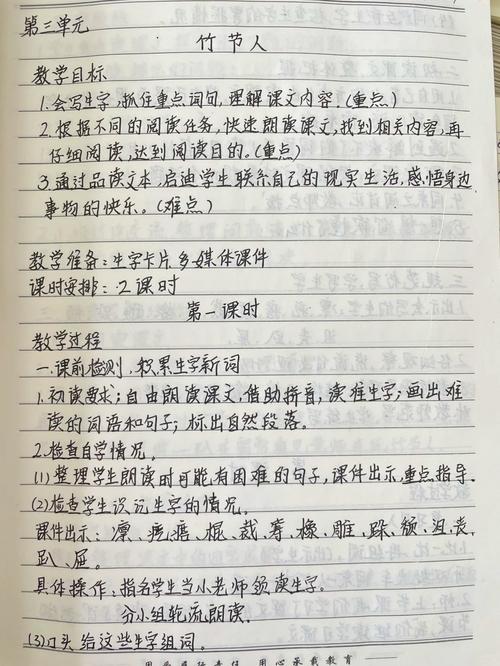 第三单元
竹节人
教学目标
1.会写生字,抓住重点词句,理解课文内容。(重点)
2.根据不同的阅读任务,快速朗读课文,找到相关内容,再
仔细阅读,达到阅读目的。(重点)
3.通过品读文本,启迪学生联系自己的现实生活,感悟身边
事物的快乐。(难点)
教学准备:生字卡片 多媒体课件
课时安排:2课时
第一课时
教学过程
一.课前检测,积累生字新词
1.初读要求:自由朗读课文,借助拼音,读准生字;画出难
读的词语和句子;标出自然段落。
2.检查自学情况。
(1)整理学生朗读时可能有困难的句子,课件出示,重点指导.
(2)检查学生识记生字的情况。
课件出示:凛、疙、瘩、棍、裁、筹、橡、雕、跺、颓、沮、丧、
趴、屉。
具体操作,指名学生当小老师领读生字。
分小组轮流朗读.
(3)口头给这些生字组词.
用心承载教育